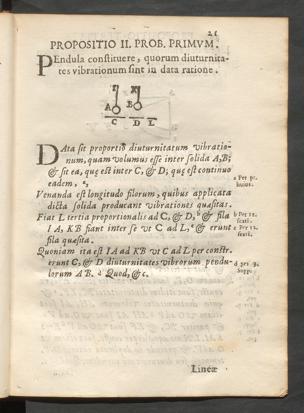 21
PROPOSITIO II. PROB. PRIMVM.
PEndula constituere, quorum diuturnita-
tes vibrationum sint in data ratione.
I K
A B
C D L
DAta sit proportio diuturnitatum vibratio-
num, quam volumus esse inter solida A, B;
& sit ea, quę est inter C, & D; quę est continuo
eadem, a,
a Per pr.
huius.
Venanda est longitudo filorum, quibus applicata
dicta solida producant vibrationes quæsitas.
Fiat L tertia proportionalis ad C, & D, b & fila
b Per 11.
sexti.
I A, K B fiant inter se vt C ad L, c & erunt
c Per 12.
sexti.
fila quæsita.
Quoniam ita est IA ad KB vt C ad L per constr.
erunt C, & D diuturnitates vibrorum pendu-
d
Supp.
lorum A B. Quod, &c.
Lineæ